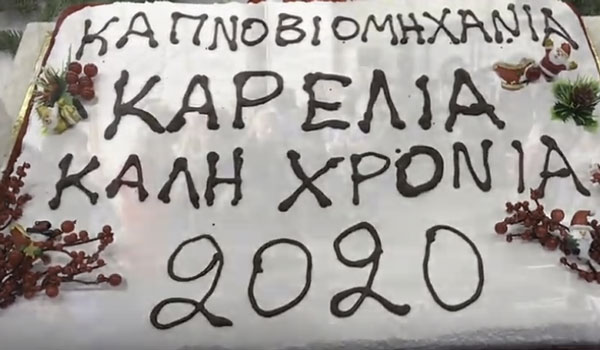 ΚΑΠΝΟΒΙΟΜΗΧΑΝΙΑ
ΚΑΡΕΛΙΑ
ΚΑΛΗ ΧΡΟΝΙΑ
2020